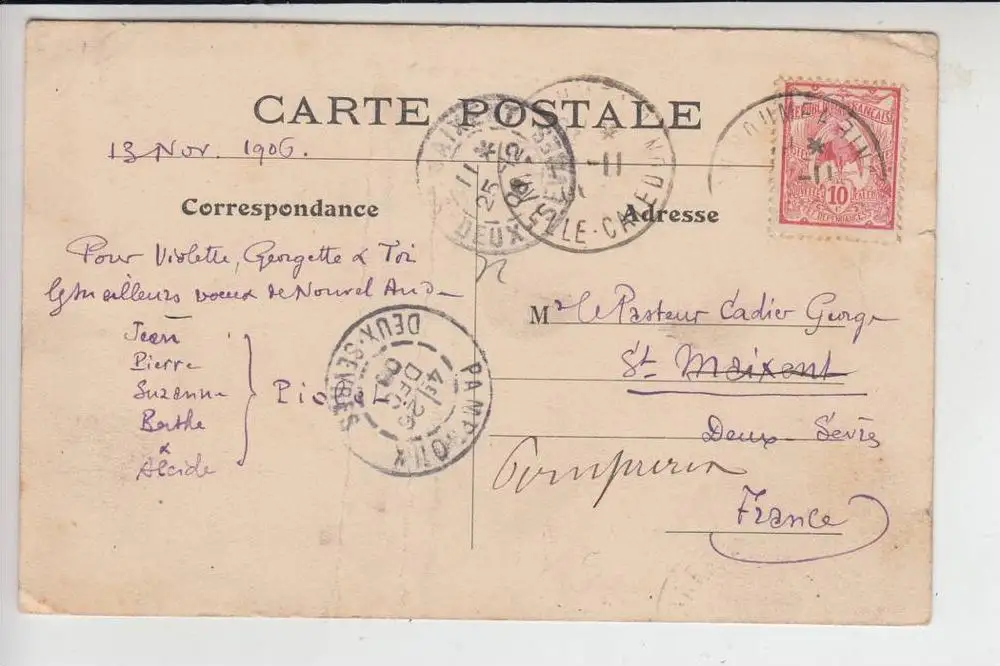 CARTE POSTALE
13 Nov. 1906.
Correspondance
Pour Violette, Georgette & Toi
les meilleurs voeux de Nouvel An
Jean
Pierre
Suzanne
Berthe
&
Alcide
Adresse
Mr le Pasteur Cadier George
St Maixent
Deux-Sèvres
France
RÉPUBLIQUE FRANÇAISE
10
DÉPENDANCES
DEUX-SÈVRES
25
-11
LLE-CALED
PAMPROUX
DEUX-SÈVRES
4E
26
DEC